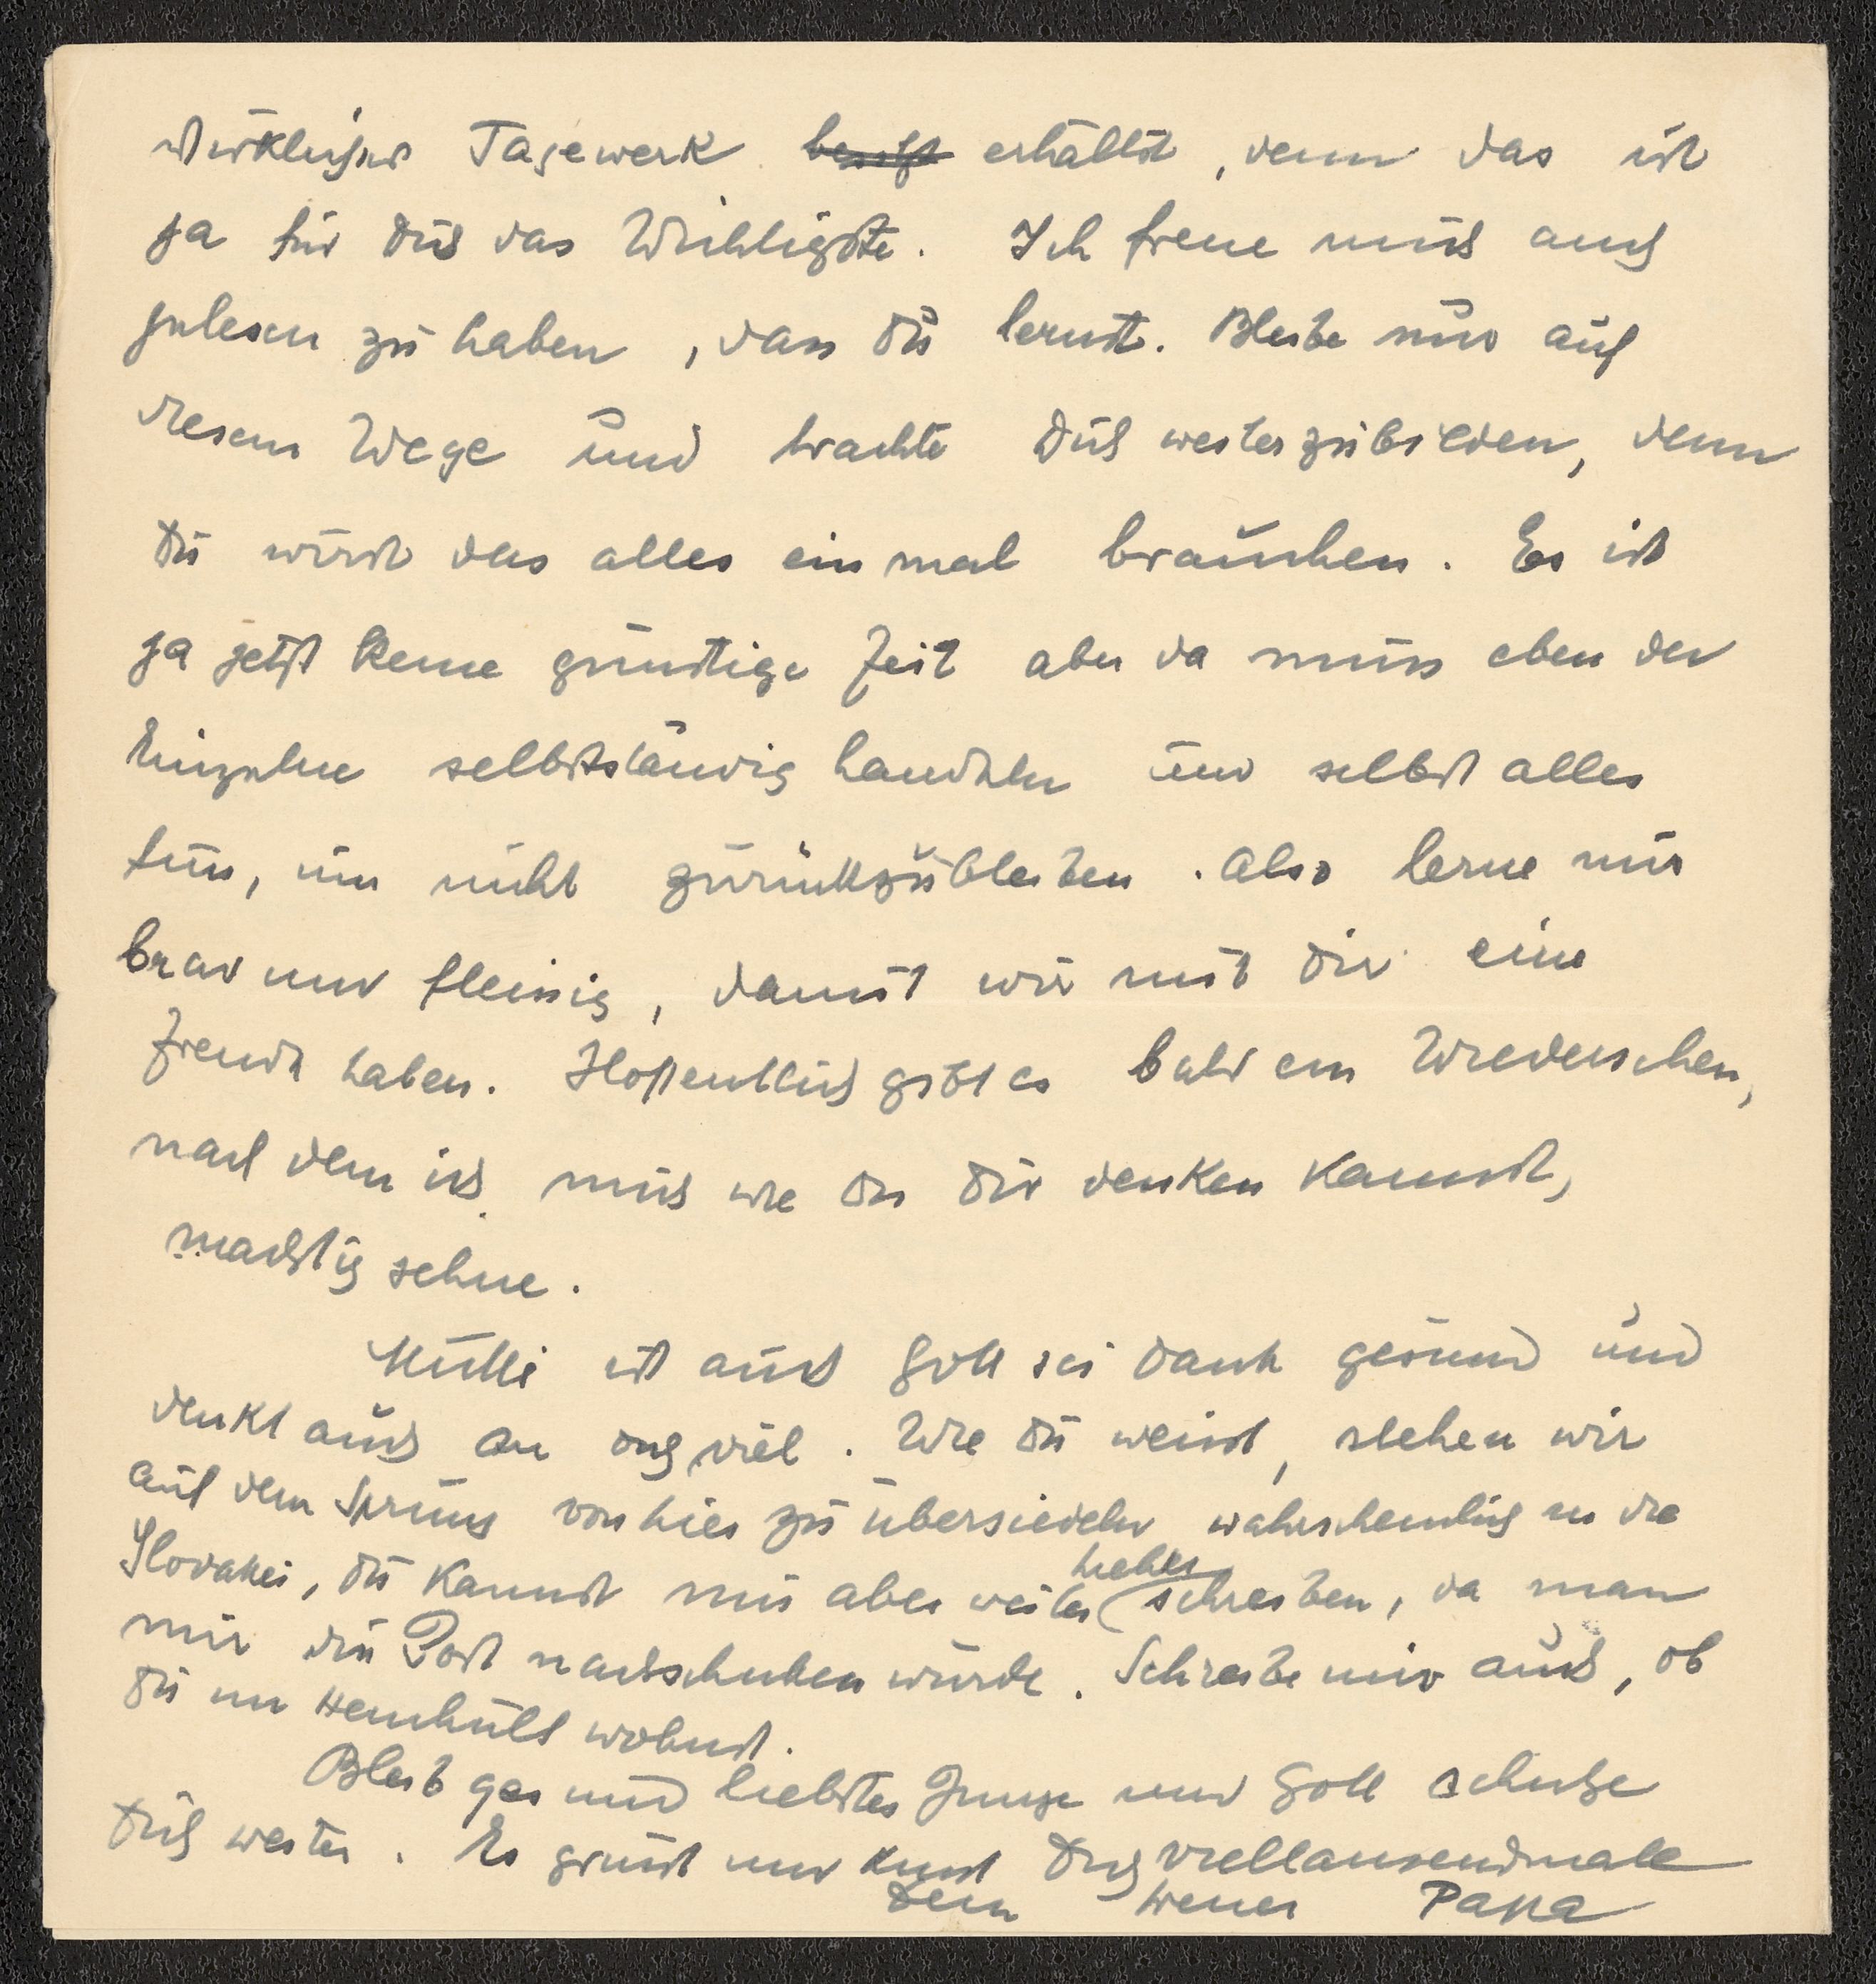 wirkliches Tagewerk erhältst, denn das ist
ja für Dich das Wichtigste. Ich freue mich auch
gelesen zu haben, dass Du lernst. Bleibe nur auf
diesem Wege und trachte Dich weiterzubilden, denn
Du wirst das alles einmal brauchen. Es ist
ja jetzt keine günstige Zeit aber da muss eben der
Einzelne selbstständig handeln und selbst alles
tun, um nicht zurückzubleiben. Also lerne nur
brav und fleissig, damit wir mit Dir eine
Freude haben. Hoffentlich gibt es bald ein Wiedersehen,
nach dem ich mich wie Du Dir denken kannst,
mächtig sehne.
Mutti ist auch Gott sei Dank gesund und
denkt auch an Dich viel. Wie Du weisst, stehen wir
auf dem Sprung von hier zu übersiedeln wahrscheinlich in die
Slovakei, Du kannst mir aber weiter hieher schreiben, da man
mir die Post nachschicken würde. Schreibe mir auch, ob
Du in wohnst.
Bleib gesund liebster Junge und Gott schütze
Dich weiter. Es grüsst und küsst Dich vieltausendmale
Dein treuer Papa